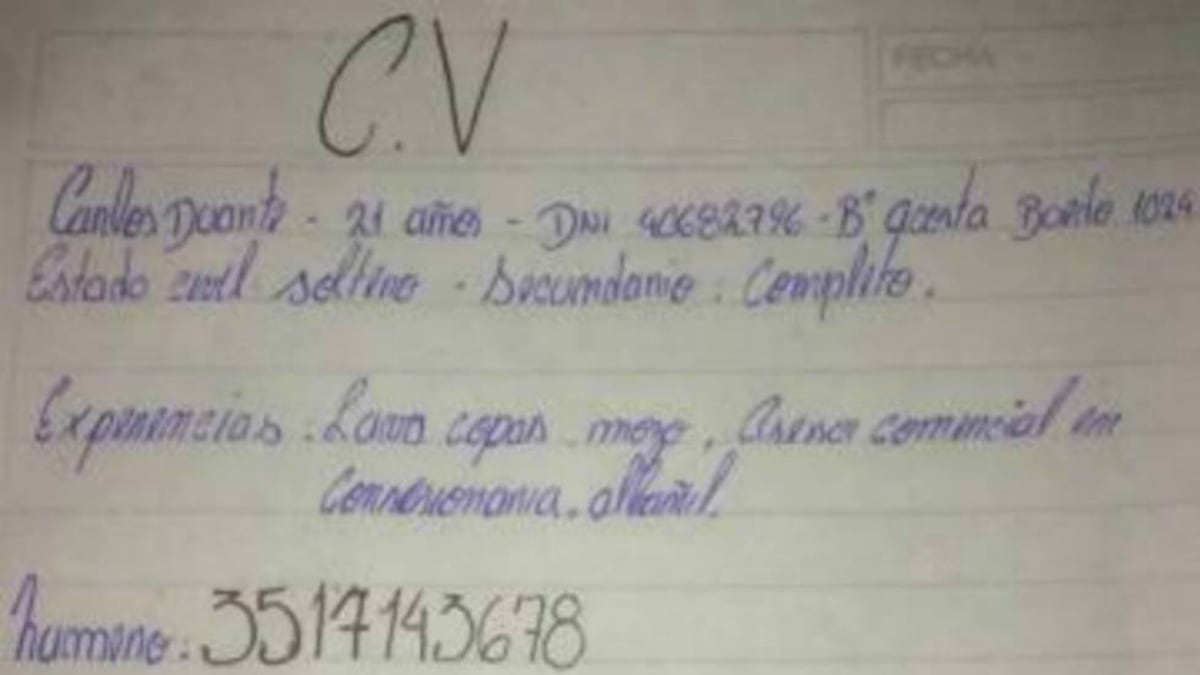 C.V
FECHA
Carlos Duarte - 21 años - DNI 40682796 - B° Acosta 1024
Estado civil soltero - Secundario : Completo.
Experiencias : Lava copas mozo, Asesor comercial en
Consesionaria. albañil.
humero : 3517143678